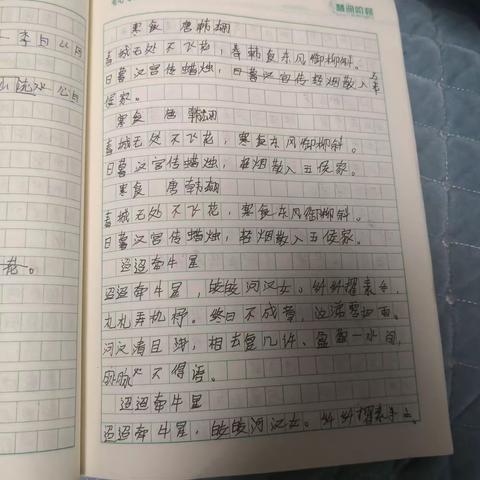 寒食 唐韩翃
春城无处不飞花，春韩食东风御柳斜。
日暮汉宫传蜡烛，日暮汉宫传轻烟散入五
侯家。
寒食 唐 韩翃
春城无处不飞花，寒食东风御柳斜。
日暮汉宫传蜡烛，轻烟散入五侯家。
寒食 唐韩翃
春城无处不飞花，寒食东风御柳斜。
日暮汉宫传蜡烛，轻烟散入五侯家。
迢迢牵牛星
迢迢牵牛星，皎皎河汉女。纤纤擢素手，
札札弄机杼。终日不成章，泣涕零如雨。
河汉清且浅，相去复几许、盈盈一水间，
脉脉不得语。
迢迢牵牛星
迢迢牵牛星，皎皎河汉女。纤纤擢素手
花。